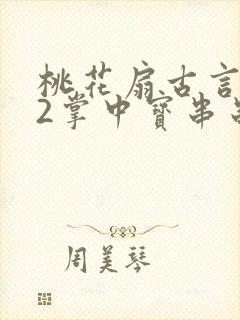 桃花扇古言
2掌中寳串
周美琴